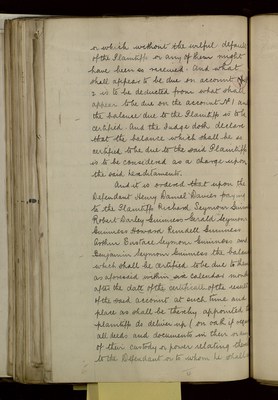 or which without the wilful default
of the Plaintiffs or any of them might
have been so received. And what
shall appear to be due on account of
2 is to be deducted from what shall
appear to be due on the account No 1 and
the balance due to the Plaintiffs is to be
certified. And the Judge doth declare
that the balance which shall be so
certified to be due to the said Plaintiffs
is to be considered as a charge upon
the said hereditaments.
And it is ordered that upon the
Defendant Henry Daniel Davies paying
to the Plaintiffs Richard Seymour Guinness
Robert Darley Guinness Gerald Seymour
Guinness Howard Rundell Guinness
Arthur Eustace Seymour Guinness and
Benjamin Seymour Guinness the balance
which shall be certified to be due to them
as aforesaid within six calendar months
after the date of the certificate of the result
of the said account at such time and
place as shall be thereby appointed the
plaintiffs do deliver up (on oath if required
all deeds and documents in their or any
of their custody or power relating thereto
to the Defendant or to whom he shall